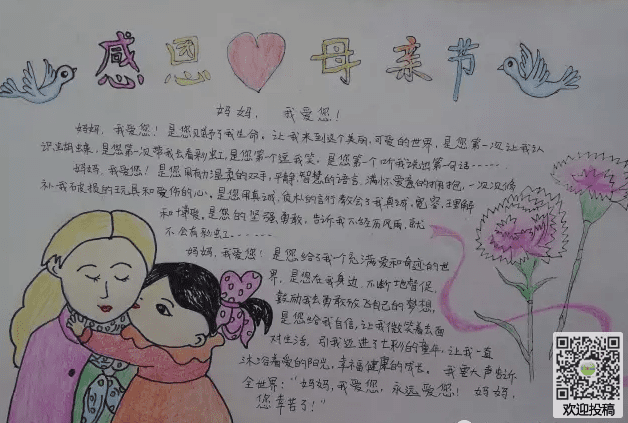 感恩母亲节
妈妈，我爱您！
妈妈，我爱您！是您赋予了我生命。让我来到这个美丽，可爱的世界，是您第一次让我认
识蝴蝶，是您第一次带我去看彩虹，是您第个逗我笑。是您第一个听我说出第一句话······
妈妈，我爱您！是您用有力温柔的双手，平静，智慧的语言，满怀爱意的拥抱，一次次修
补我破损的玩具和爱你的心。是您用真诚，质朴的言行教会了我真诚，宽容，理解
和博爱。是您的坚强勇敢，告诉我不经历风雨，就
不会有彩虹······
妈妈，我爱您！是您给了我一个充满爱和奇迹的世
界，是您在我身边，不断地督促，
鼓励我去勇敢放飞自己的梦想。
是您给我自信，让我微笑着去面
对生活，引我迈进了七彩的童年，让我一直
沐浴着爱的阳光，幸福健康的成长。我要大声告诉
全世界："妈妈，我爱您，永远爱您！妈妈，
您辛苦了！"
欢迎投稿